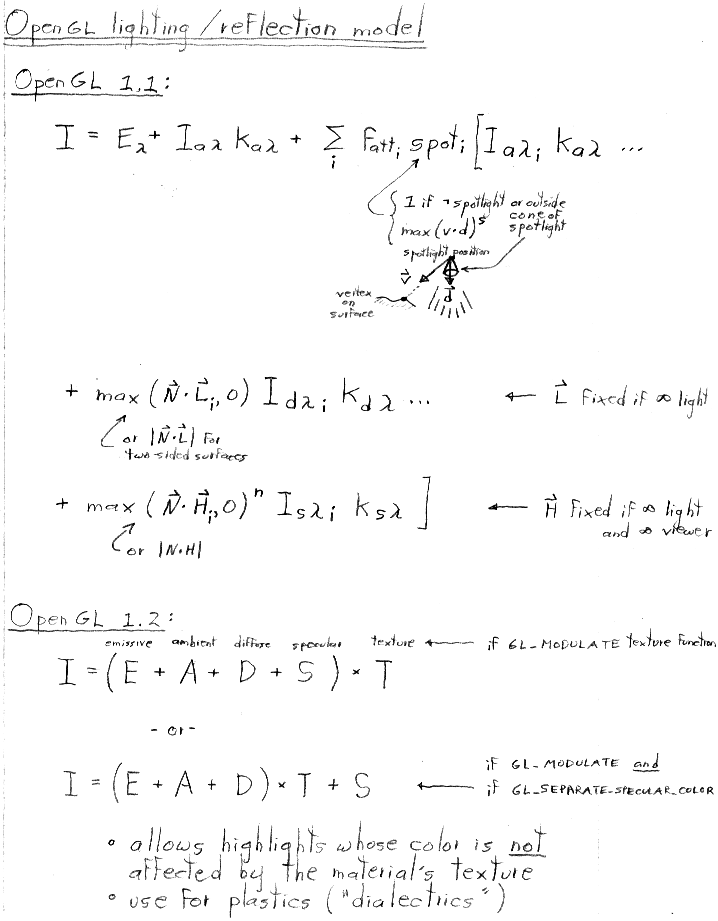 OpenGL lighting/reflection model
OpenGL 1.1:
I = Eλ + Iaλ kaλ + Σi fatti spoti [Iaλi kaλ ...
{ 1 if ¬spotlight or outside cone of spotlight
max(v·d)^s
spotlight position
v⃗
d⃗
vertex
on
surface
+ max(N⃗·L⃗i,0) Idλi kdλ ... ← L⃗ fixed if ∞ light
or |N⃗·L⃗| for
two-sided surfaces
+ max(N⃗·H⃗i,0)^n Isλi ksλ ] ← H⃗ fixed if ∞ light
and ∞ viewer
or |N·H|
OpenGL 1.2:
emissive ambient diffuse specular texture ← if GL_MODULATE texture function
I = (E + A + D + S) × T
- or -
if GL_MODULATE and
I = (E + A + D) × T + S ← if GL_SEPARATE_SPECULAR_COLOR
• allows highlights whose color is not
affected by the material's texture
• use for plastics ("dialectrics")